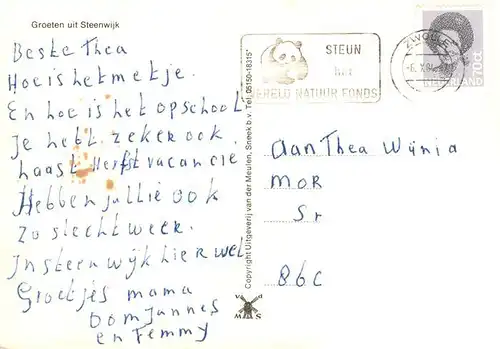 Groeten uit Steenwijk
Beste Thea
Hoe is het met je.
En hoe is het op school
Je hebt zeker ook
haast Herfst vacancie
Hebben jullie ook
Zo slecht weer.
In steenwijk hier wel.
Groetjes mama
oom Jannes
en Femmy
Copyright Uitgeverij van der Meulen, Sneek b.v. Tel. 05150-18315*
v d
M S
STEUN
het
WERELD NATUUR FONDS
ZWOLLE
NEDERLAND 70ct
aan Thea Wijnia
MOR
Sr
86c